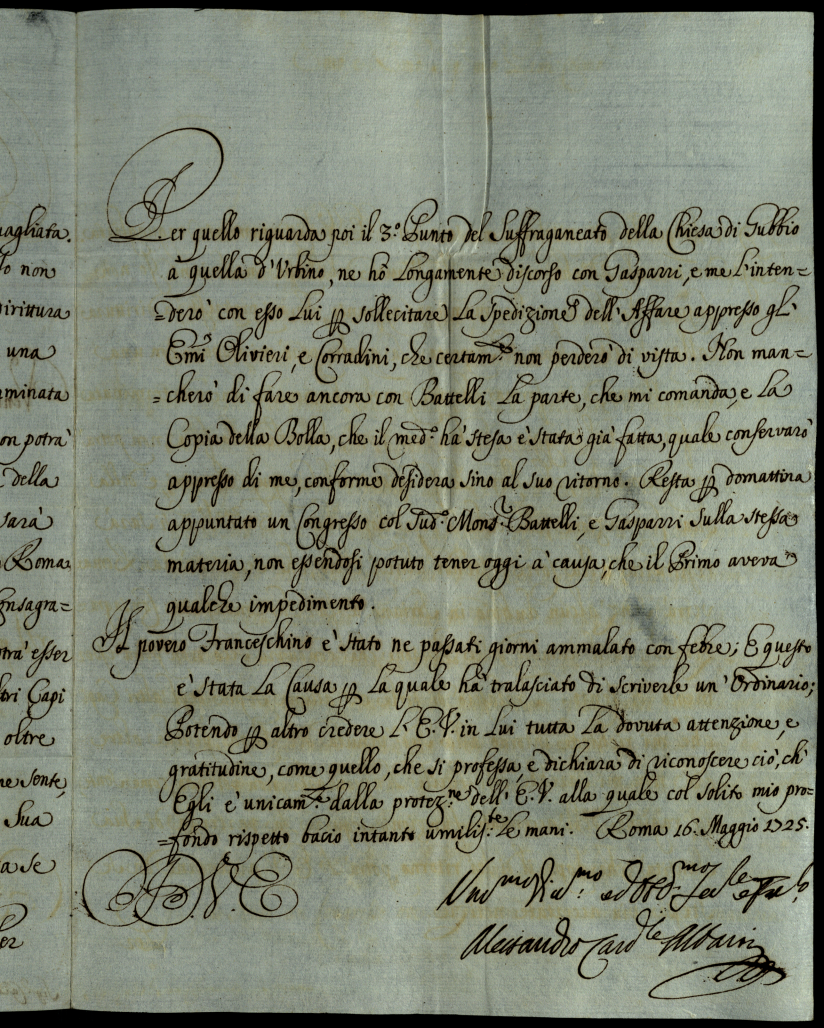 agliata.
o non
irittura
una
minata
on potrà
della
sarà
Roma
onsagra=
otrà esser
tri Capi
oltre
ne sente,
Sua
a se
er
Per quello riguarda poi il 3.º Punto del Suffraganeato della Chiesa di Gubbio
à quella d'Urbino, ne hò Longamente discorso con Gasparri, e me l'inten=
=derò con esso Lui p sollecitare La Spedizione dell'Affare appresso gl'
Emi Olivieri, e Corradini, che certam.e non perderò di vista. Non man=
=cherò di fare ancora con Battelli La parte, che mi comanda, e La
Copia della Bolla, che il med.º hà stesa è stata già fatta, quale conservarò
appresso di me, conforme desidera sino al suo ritorno. Resta p domattina
appuntato un Congresso col Sud.º Mons.r Battelli, e Gasparri sulla stessa
materia, non essendosi potuto tener oggi à causa, che il Primo aveva
qualche impedimento.
Il povero Franceschino è stato ne passati giorni ammalato con febre; E questo
è stata La Causa p La quale hà tralasciato di scriverle un'Ordinario;
Potendo p altro credere L'E.V. in Lui tutta La dovuta attenzione, e
gratitudine, come quello, che si professa, e dichiara di riconoscere ciò, ch'
Egli è unicam.te dalla protez.ne dell'E.V. alla quale col solito mio pro=
=fondo rispetto bacio intanto umilis.te le mani. Roma 16. Maggio 1725.
D. V. E
Alessandro Card.le Albani